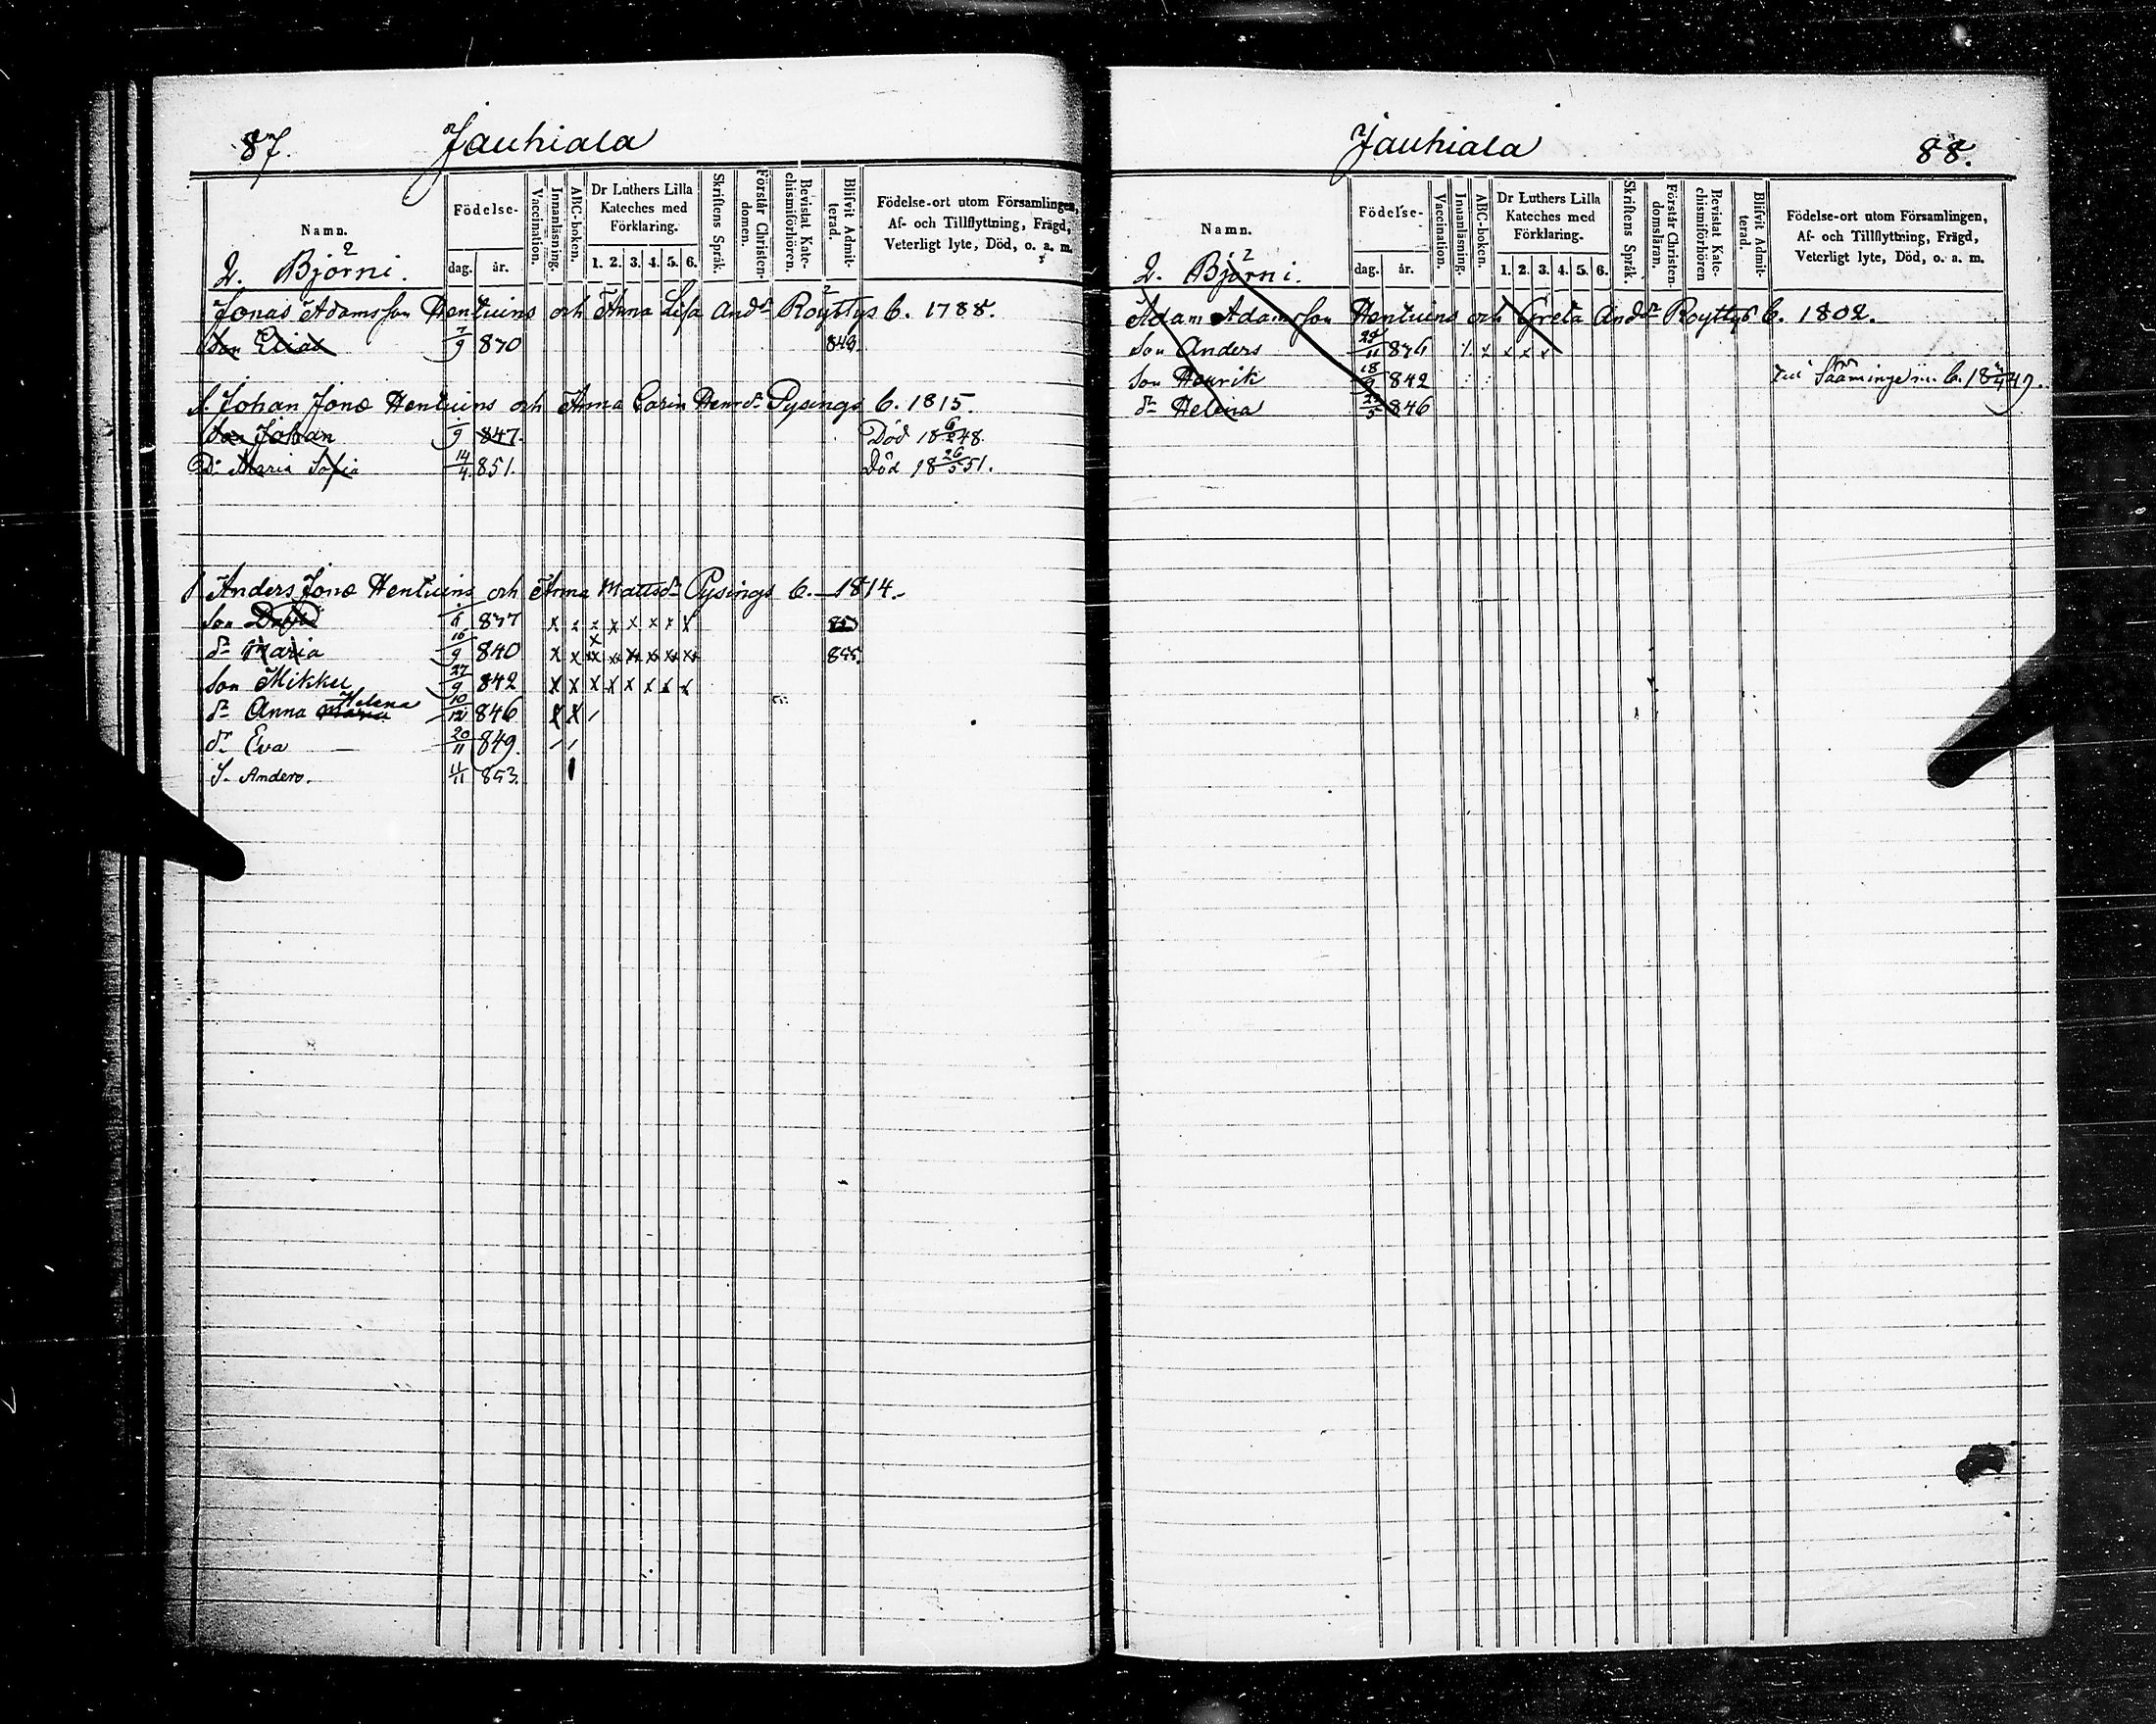 87. Jauhiala
Namn.
Födelse-
dag. år.
Vaccination.
Innanläsning.
ABC-boken.
Dr Luthers Lilla
Kateches med
Förklaring.
1. 2. 3. 4. 5. 6.
Skriftens Språk.
Förstår Christen-
domen.
Bevistat Kate-
chismiförhören.
Blifvit Admit-
terad.
Födelse-ort utom Församlingen,
Af- och Tillflyttning, Frägd,
Veterligt lyte, Död, o. a. m.
2
2. Björni.
Jonas Adamsson Hentuins och Anna Lisa Andsdr Röyttys b. 1788.
Son Elias 7/9 830 849.
S. Johan Jonæ Hentuins och Anna Carin Henrdr Pysings b. 1815.
Son Johan /9 847. Död 18 6/2 48.
Dr Maria Sofia 14/4 851. Död 18 26/5 51.
S. Anders Jonæ Hentuins och Anna Mattsdr Pysings b. 1814.
Son David 837 x x x x x x x x
dr Maria 16/9 840 x x x x x x x x 855.
Son Mikkel 27/9 842 x x x x x x x x
Helena
dr Anna Maria 10/12 846 x x /
dr Eva 20/11 849.
S. Anders. 11/11 853.
Jauhiala 88.
Namn.
Födelse-
dag. år.
Vaccination.
Innanläsning.
ABC-boken.
Dr Luthers Lilla
Kateches med
Förklaring.
1. 2. 3. 4. 5. 6.
Skriftens Språk.
Förstår Christen-
domsläran.
Bevistat Kate-
chismiförhören
Blifvit Admit-
terad.
Födelse-ort utom Församlingen,
Af- och Tillflyttning, Frägd,
Veterligt lyte, Död, o. a. m.
2
2. Björni.
Adam Adamsson Hentuins och Greta Andsdr Röyttys b. 1802.
Son Anders 836 x x x
Son Henrik 18/9 842 till Sääminge
dr Helena 846